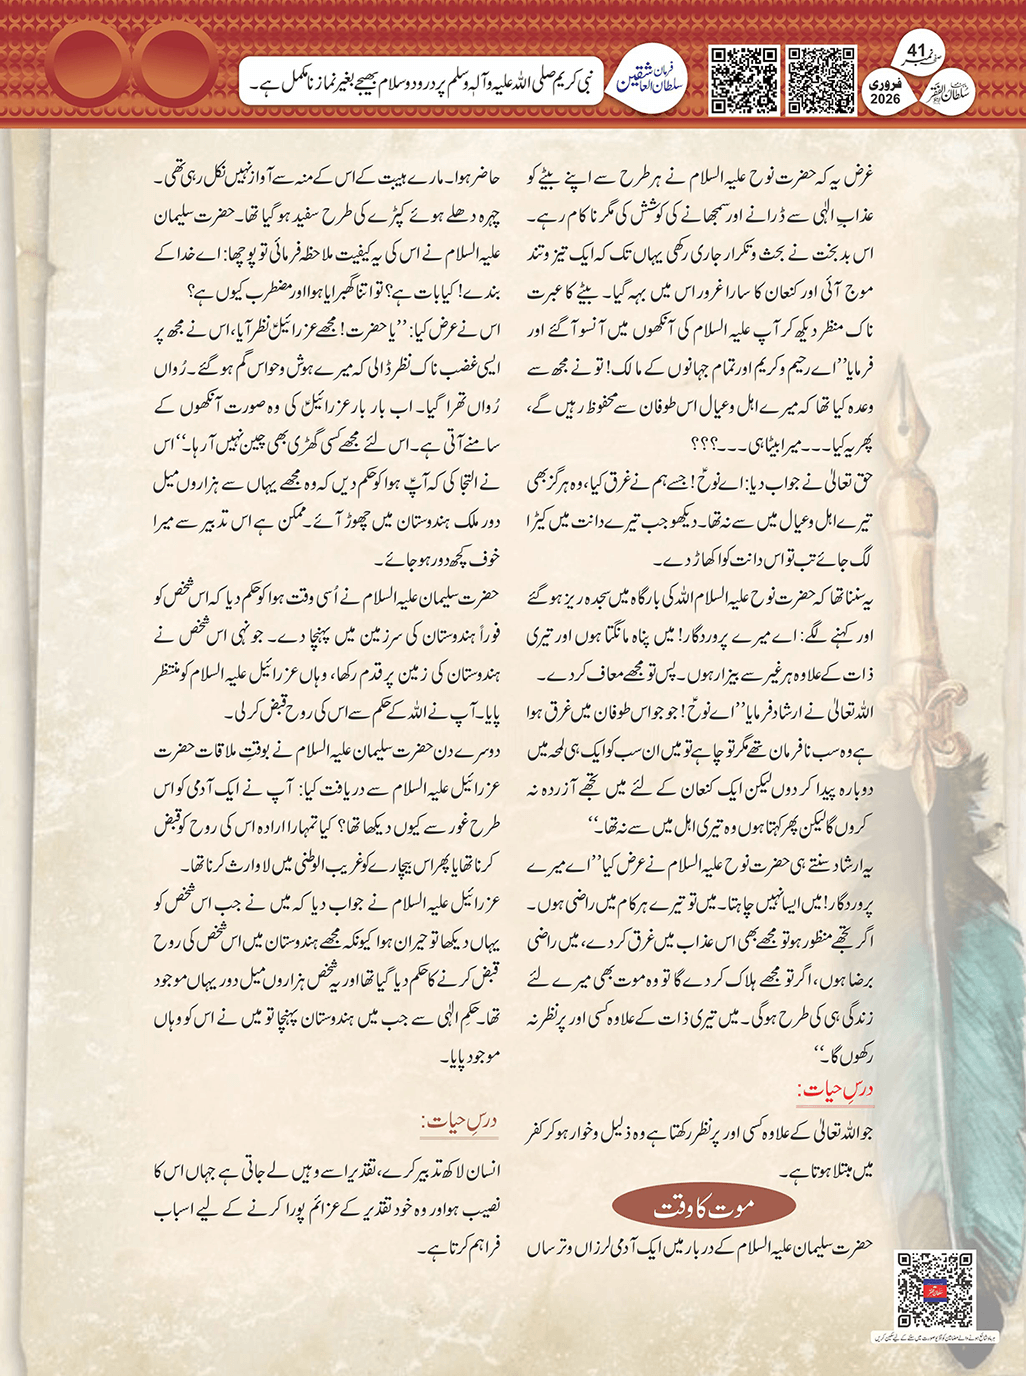 نبی کریم صلی اللہ علیہ وآلہٖ وسلم پر درود و سلام بھیجے بغیر نماز نامکمل ہے۔
فرمان
سلطان العاشقین
صفحہ نمبر 41
فروری
2026
سلطان الفقر
غرض یہ کہ حضرت نوح علیہ السلام نے ہر طرح سے اپنے بیٹے کو
عذابِ الٰہی سے ڈرانے اور سمجھانے کی کوشش کی مگر ناکام رہے۔
اس بدبخت نے بحث و تکرار جاری رکھی یہاں تک کہ ایک تیز و تند
موج آئی اور کنعان کا سارا غرور اس میں بہہ گیا۔ بیٹے کا عبرت
ناک منظر دیکھ کر آپ علیہ السلام کی آنکھوں میں آنسو آگئے اور
فرمایا’’اے رحیم و کریم اور تمام جہانوں کے مالک! تو نے مجھ سے
وعدہ کیا تھا کہ میرے اہل و عیال اس طوفان سے محفوظ رہیں گے،
پھر یہ کیا۔۔۔میرا بیٹا ہی۔۔۔؟؟؟
حق تعالیٰ نے جواب دیا: اے نوحؑ! جسے ہم نے غرق کیا، وہ ہرگز بھی
تیرے اہل و عیال میں سے نہ تھا۔ دیکھو جب تیرے دانت میں کیڑا
لگ جائے تب تو اس دانت کو اکھاڑ دے۔
یہ سننا تھا کہ حضرت نوح علیہ السلام اللہ کی بارگاہ میں سجدہ ریز ہو گئے
اور کہنے لگے: اے میرے پروردگار! میں پناہ مانگتا ہوں اور تیری
ذات کے علاوہ ہر غیر سے بیزار ہوں۔ پس تو مجھے معاف کر دے۔
اللہ تعالیٰ نے ارشاد فرمایا’’اے نوحؑ! جو جو اس طوفان میں غرق ہوا
ہے وہ سب نافرمان تھے مگر تو چاہے تو میں ان سب کو ایک ہی لمحہ میں
دوبارہ پیدا کر دوں لیکن ایک کنعان کے لئے میں تجھے آزردہ نہ
کروں گا لیکن پھر کہتا ہوں وہ تیری اہل میں سے نہ تھا۔‘‘
یہ ارشاد سنتے ہی حضرت نوح علیہ السلام نے عرض کیا’’اے میرے
پروردگار! میں ایسا نہیں چاہتا۔ میں تو تیرے ہر کام میں راضی ہوں۔
اگر تجھے منظور ہو تو مجھے بھی اس عذاب میں غرق کر دے، میں راضی
برضا ہوں، اگر تو مجھے ہلاک کر دے گا تو وہ موت بھی میرے لئے
زندگی ہی کی طرح ہوگی۔ میں تیری ذات کے علاوہ کسی اور پر نظر نہ
رکھوں گا۔‘‘
درسِ حیات:
جو اللہ تعالیٰ کے علاوہ کسی اور پر نظر رکھتا ہے وہ ذلیل و خوار ہو کر کفر
میں مبتلا ہوتا ہے۔
موت کا وقت
حضرت سلیمان علیہ السلام کے دربار میں ایک آدمی لرزاں و ترساں
حاضر ہوا۔ مارے ہیبت کے اس کے منہ سے آواز نہیں نکل رہی تھی۔
چہرہ دھلے ہوئے کپڑے کی طرح سفید ہو گیا تھا۔ حضرت سلیمان
علیہ السلام نے اس کی یہ کیفیت ملاحظہ فرمائی تو پوچھا: اے خدا کے
بندے! کیا بات ہے؟ تو اتنا گھبرایا ہوا اور مضطرب کیوں ہے؟
اس نے عرض کیا: ’’یا حضرت! مجھے عزرائیلؑ نظر آیا، اس نے مجھ پر
ایسی غضب ناک نظر ڈالی کہ میرے ہوش و حواس گم ہو گئے۔ رُواں
رُواں تھرا گیا۔ اب بار بار عزرائیلؑ کی وہ صورت آنکھوں کے
سامنے آتی ہے۔ اس لئے مجھے کسی گھڑی بھی چین نہیں آ رہا۔‘‘ اس
نے التجا کی کہ آپؑ ہوا کو حکم دیں کہ وہ مجھے یہاں سے ہزاروں میل
دور ملک ہندوستان میں چھوڑ آئے۔ ممکن ہے اس تدبیر سے میرا
خوف کچھ دور ہو جائے۔
حضرت سلیمان علیہ السلام نے اُسی وقت ہوا کو حکم دیا کہ اس شخص کو
فوراً ہندوستان کی سرزمین میں پہنچا دے۔ جونہی اس شخص نے
ہندوستان کی زمین پر قدم رکھا، وہاں عزرائیل علیہ السلام کو منتظر
پایا۔ آپ نے اللہ کے حکم سے اس کی روح قبض کر لی۔
دوسرے دن حضرت سلیمان علیہ السلام نے بوقتِ ملاقات حضرت
عزرائیل علیہ السلام سے دریافت کیا: آپ نے ایک آدمی کو اس
طرح غور سے کیوں دیکھا تھا؟ کیا تمہارا ارادہ اس کی روح کو قبض
کرنا تھا یا پھر اس بیچارے کو غریب الوطنی میں لاوارث کرنا تھا۔
عزرائیل علیہ السلام نے جواب دیا کہ میں نے جب اس شخص کو
یہاں دیکھا تو حیران ہوا کیونکہ مجھے ہندوستان میں اس شخص کی روح
قبض کرنے کا حکم دیا گیا تھا اور یہ شخص ہزاروں میل دور یہاں موجود
تھا۔ حکمِ الٰہی سے جب میں ہندوستان پہنچا تو میں نے اس کو وہاں
موجود پایا۔
درسِ حیات:
انسان لاکھ تدبیر کرے، تقدیر اسے وہیں لے جاتی ہے جہاں اس کا
نصیب ہو اور وہ خود تقدیر کے عزائم پورا کرنے کے لیے اسباب
فراہم کرتا ہے۔